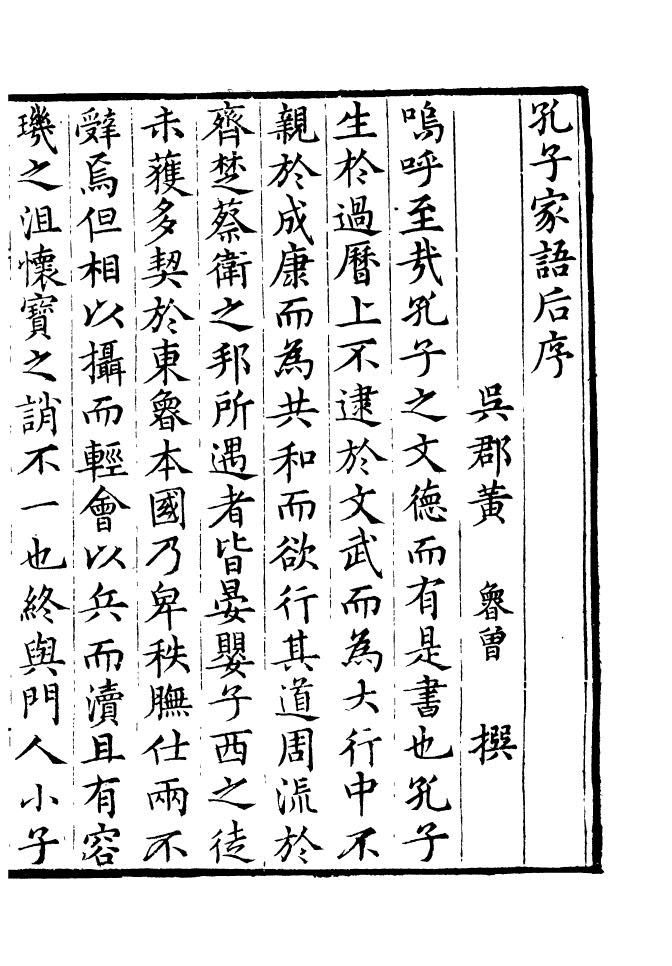 孔子家語后序
吳郡黃 魯曾 撰
嗚呼至哉孔子之文德而有是書也孔子
生於過曆上不逮於文武而為大行中不
親於成康而為共和而欲行其道周流於
齊楚蔡衛之邦所遇者皆晏嬰子西之徒
未獲多契於東魯本國乃卑秩膴仕兩不
辭焉但相以攝而輕會以兵而瀆且有容
璣之沮懷寶之誚不一也終與門人小子